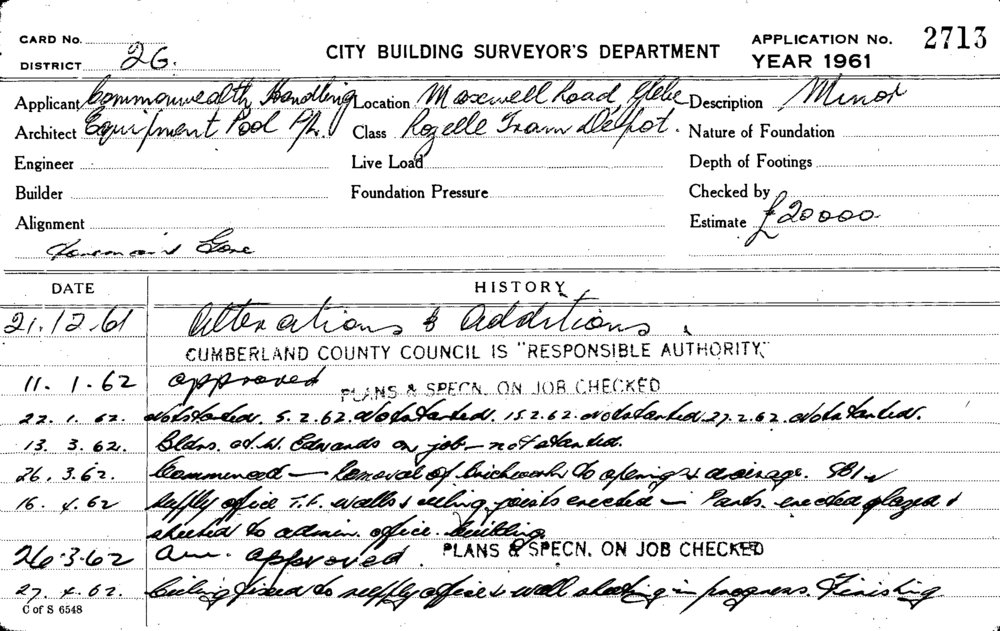 CARD No.
DISTRICT 26.
CITY BUILDING SURVEYOR'S DEPARTMENT
APPLICATION No. 2713
YEAR 1961
Applicant Commonwealth Handling Location Maxwell Road Glebe Description Minor
Architect Equipment Pool P/L. Class Rozelle Tram Depot. Nature of Foundation
Engineer Live Load Depth of Footings
Builder Foundation Pressure Checked by
Alignment Estimate £20000
DATE HISTORY
21.12.61 Alterations & Additions
CUMBERLAND COUNTY COUNCIL IS "RESPONSIBLE AUTHORITY"
11.1.62 approved PLANS & SPECN. ON JOB CHECKED
22.1.62. Not started. 5.2.62. Not started. 15.2.62. Not started. 27.2.62. Not started.
13.3.62. Bldrs. A.W. Edwards on job - not started.
26.3.62. Commenced - Removal of brickwork to openings &
16.4.62 office T.F. walls & ceiling joists erected - Parts. erected glazed &
sheeted to admin. office building
26.3.62 Am. approved. PLANS & SPECN. ON JOB CHECKED
27.4.62. Ceiling fixed to office & wall sheeting in progress. Finishing
C of S 6548